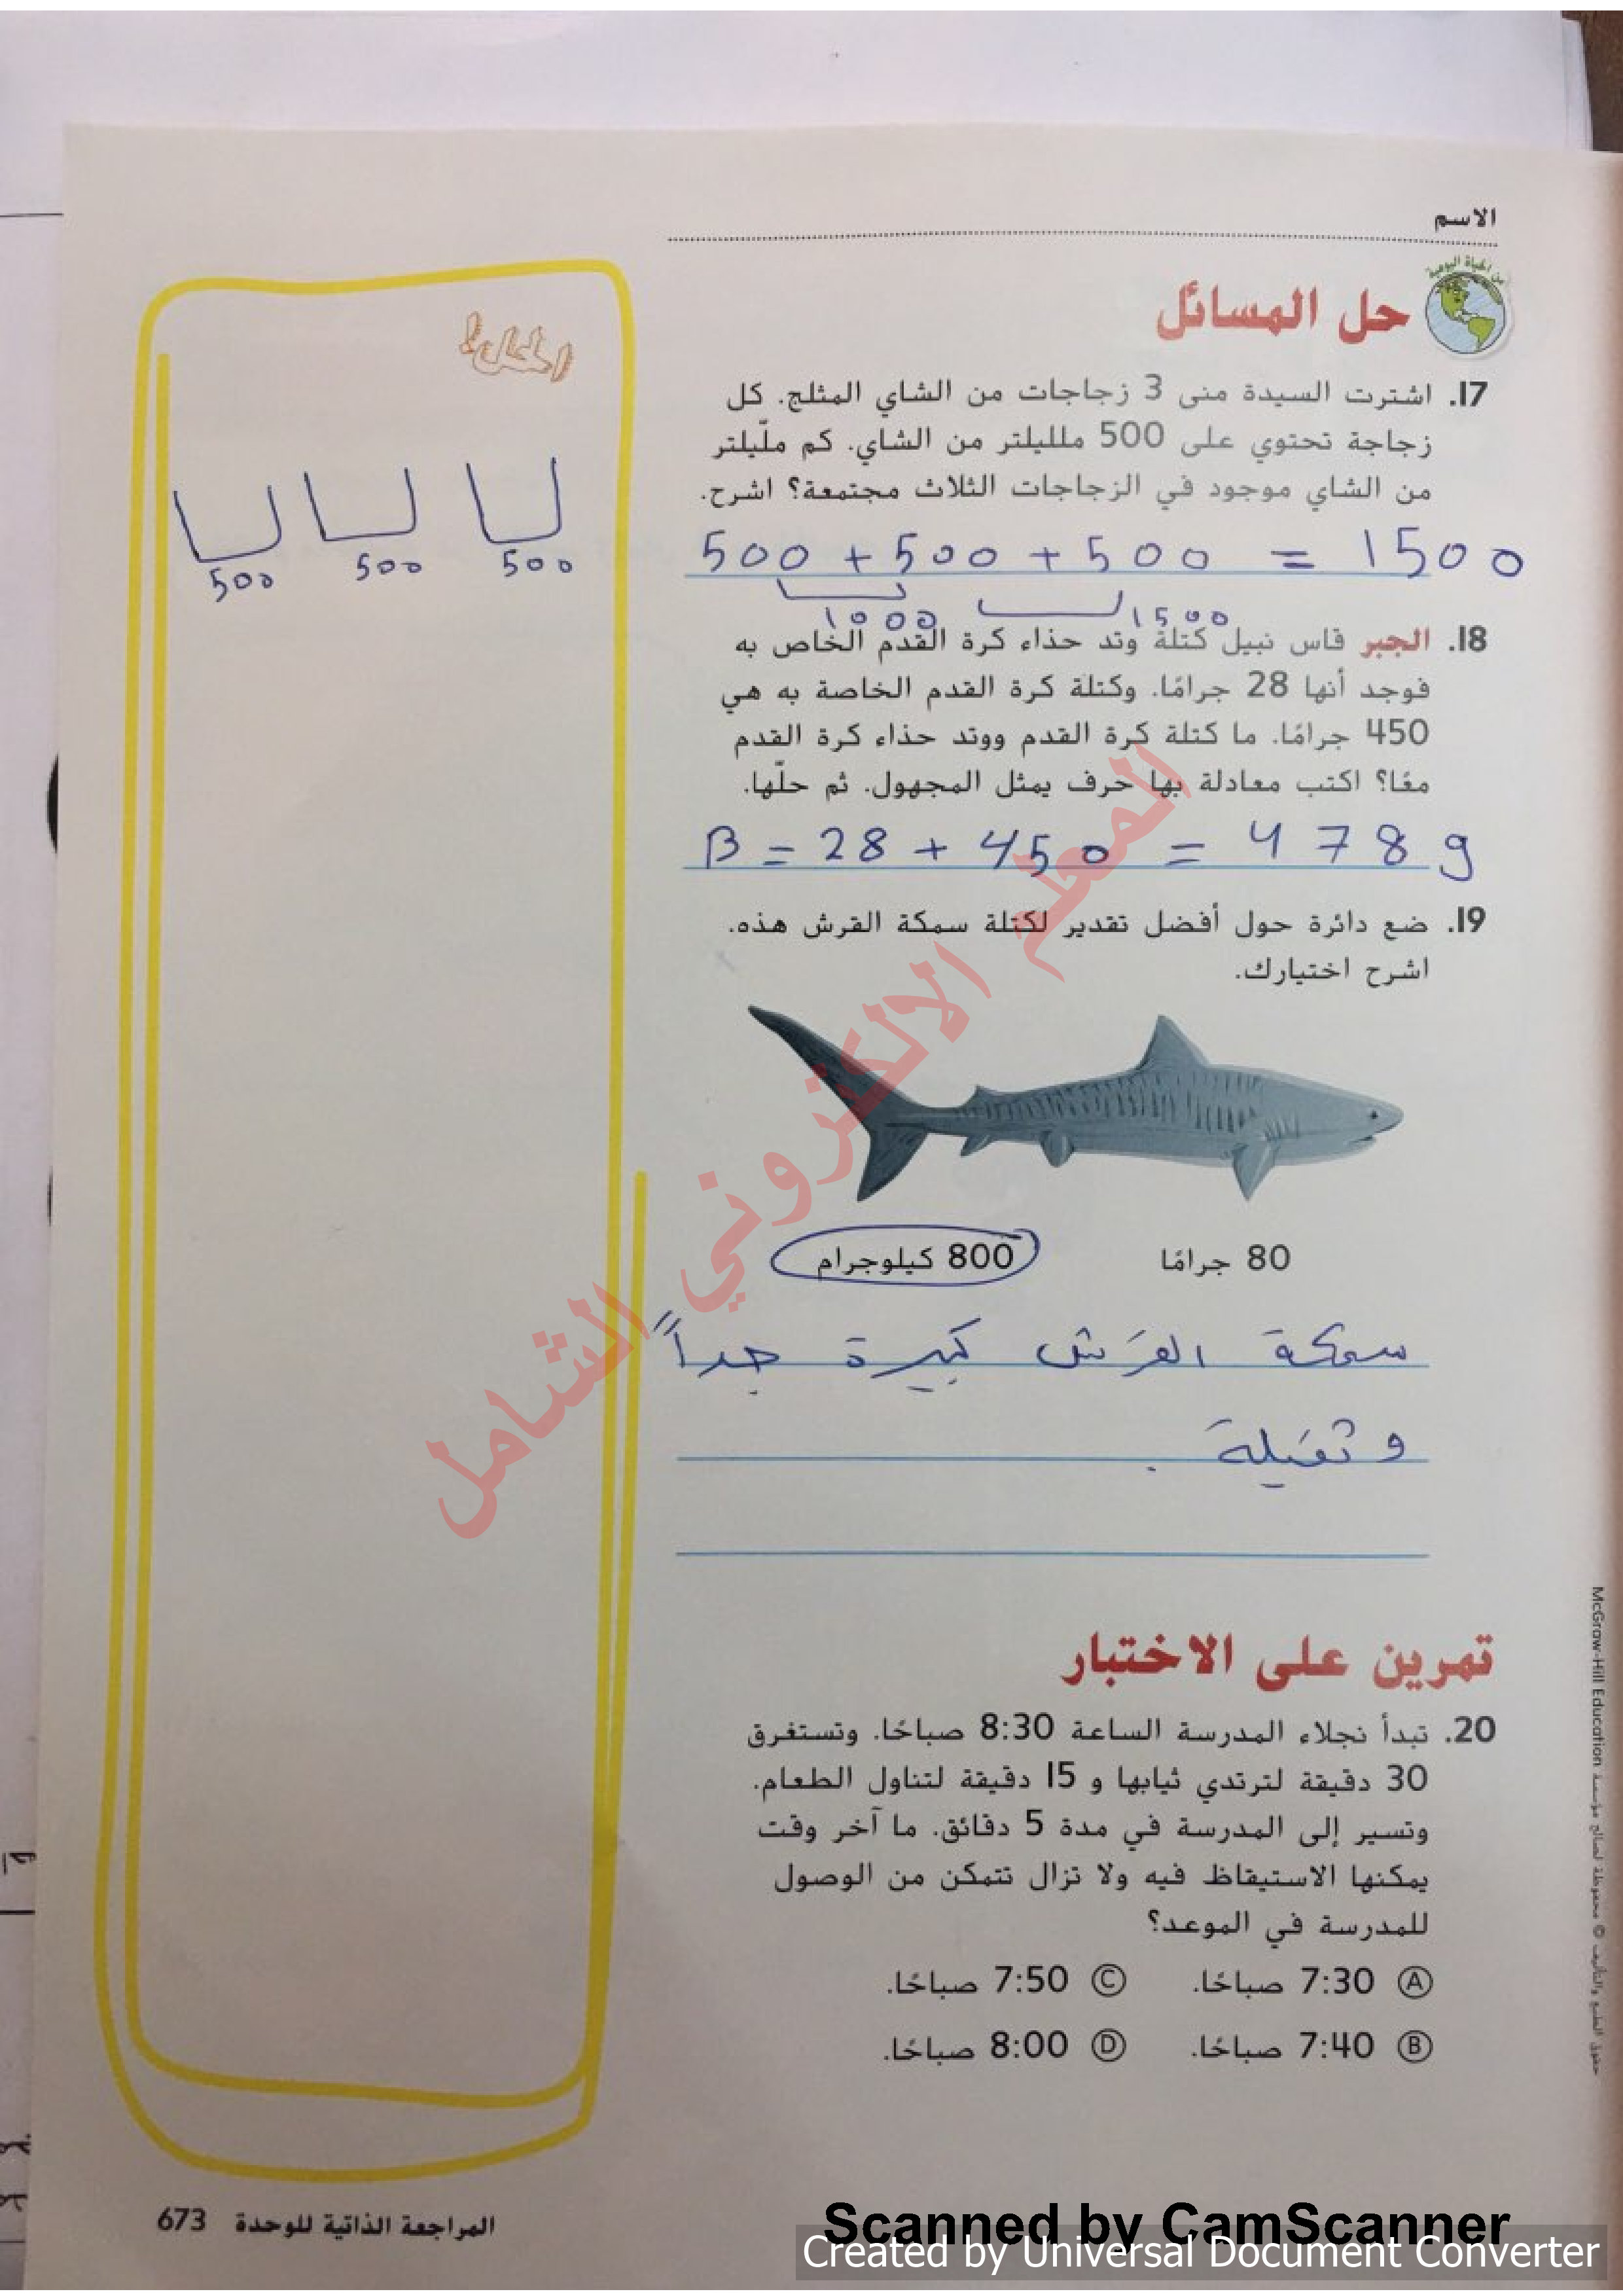 الاسم
من الحياة اليومية
حل المسائل
17. اشترت السيدة منى 3 زجاجات من الشاي المثلج. كل
زجاجة تحتوي على 500 ملليلتر من الشاي. كم ملّيلتر
من الشاي موجود في الزجاجات الثلاث مجتمعة؟ اشرح.
500 + 500 + 500 = 1500
1000 1500
18. الجبر قاس نبيل كتلة وتد حذاء كرة القدم الخاص به
فوجد أنها 28 جرامًا. وكتلة كرة القدم الخاصة به هي
450 جرامًا. ما كتلة كرة القدم ووتد حذاء كرة القدم
معًا؟ اكتب معادلة بها حرف يمثل المجهول. ثم حلّها.
B = 28 + 450 = 478 g
19. ضع دائرة حول أفضل تقدير لكتلة سمكة القرش هذه.
اشرح اختيارك.
80 جرامًا 800 كيلوجرام
سمكة القرش كبيرة جداً
وثقيلة .
تمرين على الاختبار
20. تبدأ نجلاء المدرسة الساعة 8:30 صباحًا. وتستغرق
30 دقيقة لترتدي ثيابها و 15 دقيقة لتناول الطعام.
وتسير إلى المدرسة في مدة 5 دقائق. ما آخر وقت
يمكنها الاستيقاظ فيه ولا تزال تتمكن من الوصول
للمدرسة في الموعد؟
A 7:30 صباحًا. C 7:50 صباحًا.
B 7:40 صباحًا. D 8:00 صباحًا.
500 500 500
المعلم الالكتروني الشامل
حقوق الطبع والتأليف © محفوظة لصالح مؤسسة McGraw-Hill Education
المراجعة الذاتية للوحدة 673
Scanned by CamScanner
Created by Universal Document Converter